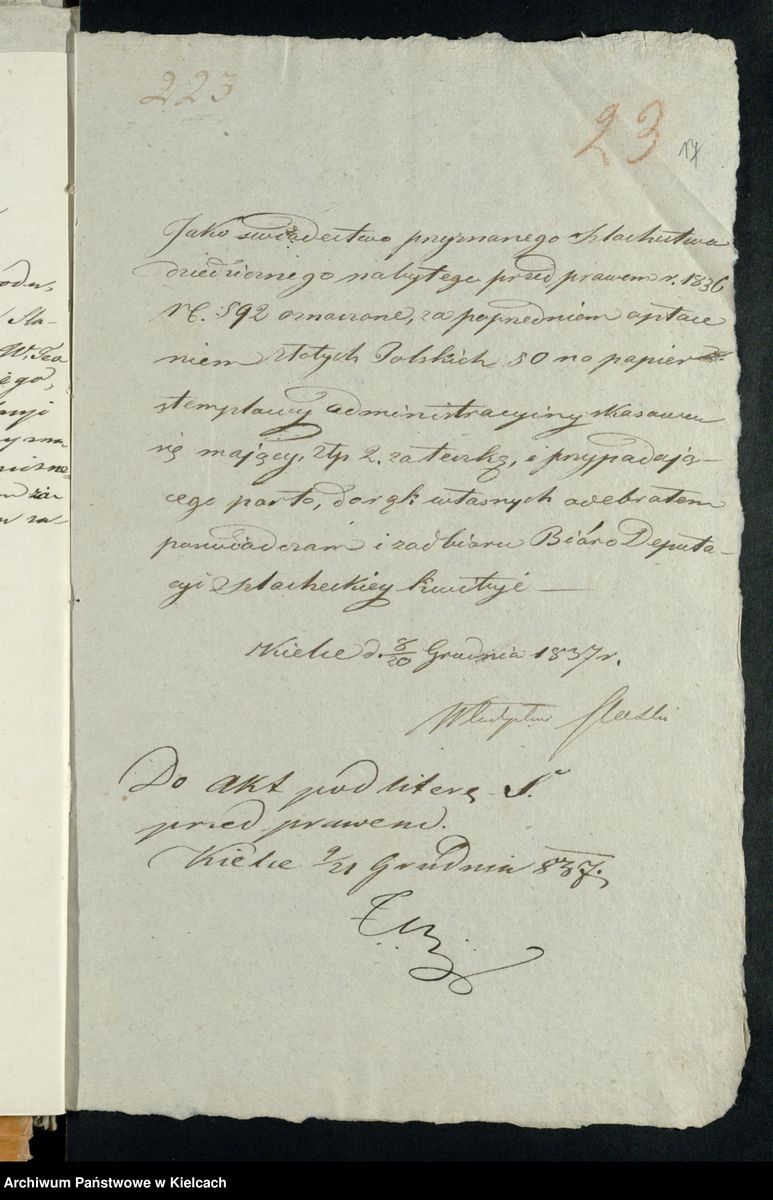 223
23
17
odu,
Sta-
W. Teo
iego,
Jako świadectwo przyznanego Szlachectwa
dziedzicznego nabytego przed prawem r. 1836
N. 592 oznaczone, za poprzedniem opłace
niem złotych Polskich 50 na papier
stemplowy administracyjny skasować
się mający, złp 2. za teczkę, i przypadają-
cego porto, do rąk własnych odebrałem
poświadczam i z odbioru Bióro Deputa-
cyi Szlacheckiey kwituję —
Kielce d. 8/20 Grudnia 1837 r.
Władysław
Do Akt pod literą S.
przed prawem.
Kielce 9/21 Grudnia 837.
Archiwum Państwowe w Kielcach